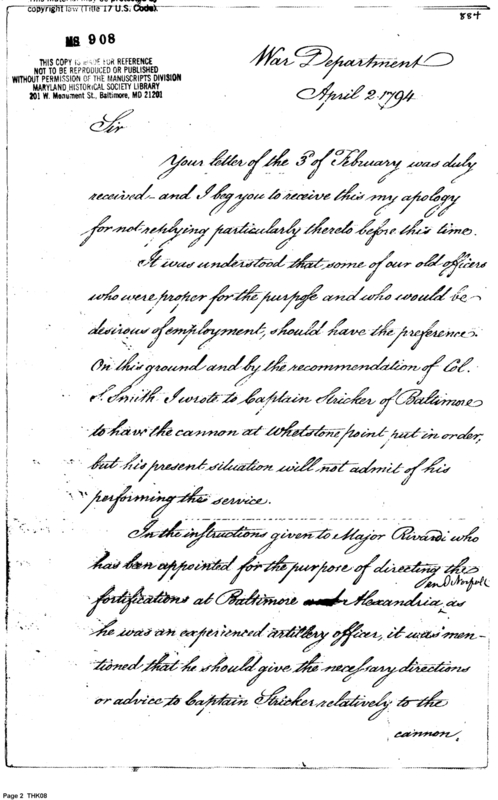 copyright law (Title 17 U.S. Code).
884
MS 908
THIS COPY IS MADE FOR REFERENCE
NOT TO BE REPRODUCED OR PUBLISHED
WITHOUT PERMISSION OF THE MANUSCRIPTS DIVISION
MARYLAND HISTORICAL SOCIETY LIBRARY
201 W. Monument St., Baltimore, MD 21201
War Department
April 2 1794
Sir
Your letter of the 3d of February was duly
received and I beg you to receive this my apology
for not replying particularly thereto before this time.
It was understood that some of our old officers
who were proper for the purpose and who would be
desirous of employment, should have the preference.
On this ground and by the recommendation of Col.
S. Smith I wrote to Captain Stricker of Baltimore
to have the cannon at Whetstone point put in order,
but his present situation will not admit of his
performing the service.
In the instructions given to Major Rivardi who
has been appointed for the purpose of directing the
fortifications at Baltimore Alexandria and Norfolk as
he was an experienced artillery officer, it was men-
tioned that he should give the necessary directions
or advice to Captain Stricker relatively to the
cannon.
Page 2 THK08